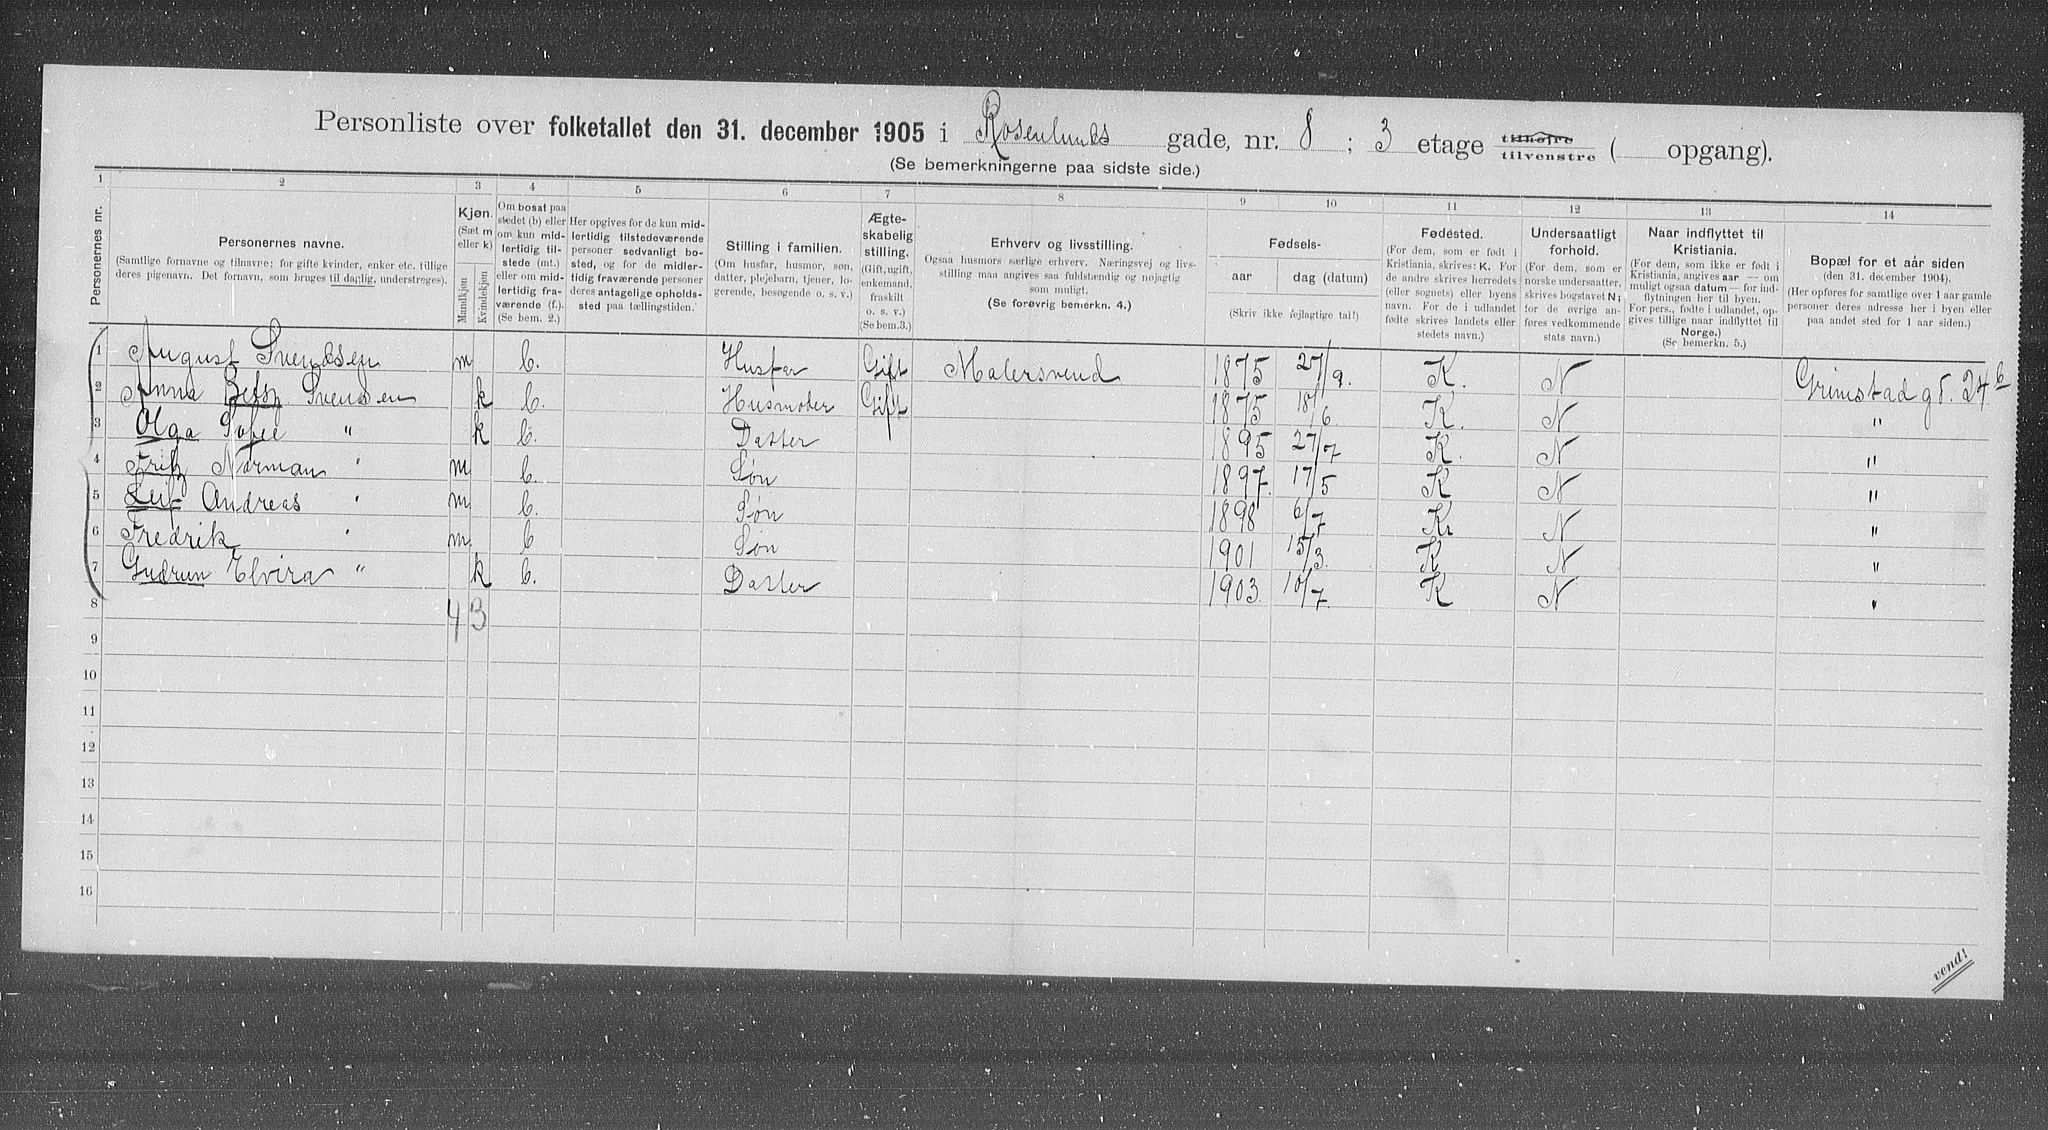 Personliste over folketallet den 31. december 1905 i Rosenlunds gade, nr. 8 ; 3 etage tilhøjre tilvenstre ( opgang).
(Se bemerkningerne paa sidste side.)
1 2 3 4 5 6 7 8 9 10 11 12 13 14
Personernes nr.
Personernes navne.
(Samtlige fornavne og tilnavne; for gifte kvinder, enker etc. tillige
deres pigenavn. Det fornavn, som bruges til daglig, understreges).
Kjøn.
(Sæt m
eller k)
Mandkjøn
Kvindekjøn
Om bosat paa
stedet (b) eller
om kun mid-
lertidig til-
stede (mt.)
eller om mid-
lertidig fra-
værende (f.).
(Se bem. 2.)
Her opgives for de kun mid-
lertidig tilstedeværende
personer sedvanligt bo-
sted, og for de midler-
tidig fraværende personer
deres antagelige opholds-
sted paa tællingstiden.
Stilling i familien.
(Om husfar, husmor, søn,
datter, plejebarn, tjener, lo-
gerende, besøgende o. s. v.)
Ægte-
skabelig
stilling.
(Gift, ugift,
enkemand,
fraskilt
o. s. v.)
(Se bem.3.)
Erhverv og livsstilling.
Ogsaa husmors særlige erhverv. Næringsvej og livs-
stilling maa angives saa fuldstændig og nøjagtig
som muligt.
(Se forøvrig bemerkn. 4.)
Fødsels-
aar dag (datum)
(Skriv ikke fejlagtige tal!)
Fødested.
(For dem, som er født i
Kristiania, skrives: K. For
de andre skrives herredets
(eller sognets) eller byens
navn. For de i udlandet
fødte skrives landets eller
stedets navn.)
Undersaatligt
forhold.
(For dem, som er
norske undersaatter,
skrives bogstavet N;
for de øvrige an-
føres vedkommende
stats navn.)
Naar indflyttet til
Kristiania.
(For dem, som ikke er født i
Kristiania, angives aar — om
muligt ogsaa datum — for ind-
flytningen her til byen.
For pers., fødte i udlandet, op-
gives tillige naar indflyttet til
Norge.)
(Se bemerkn. 5.)
Bopæl for et aar siden
(den 31. december 1904).
(Her opføres for samtlige over 1 aar gamle
personer deres adresse her i byen eller
paa andet sted for 1 aar siden.)
1 August Svendsen m b. Husfar Gift Malersvend 1875 27/9. K. N Grimstadgd. 24 b
2 Anna Svendsen k b. Husmoder Gift 1875 18/6. K. N "
3 Olga Sofie " k b. Datter 1895 27/7 K. N "
4 Fritz Norman " m b. Søn 1897. 17/5 K N "
5 Leif Andreas " m b. Søn 1898 6/7 Kr N "
6 Fredrik " m b Søn 1901 15/3. K N "
7 Gudrun Elvira " k b. Datter 1903. 10/7. K N "
8 4 3
9
10
11
12
13
14
15
16
vend!